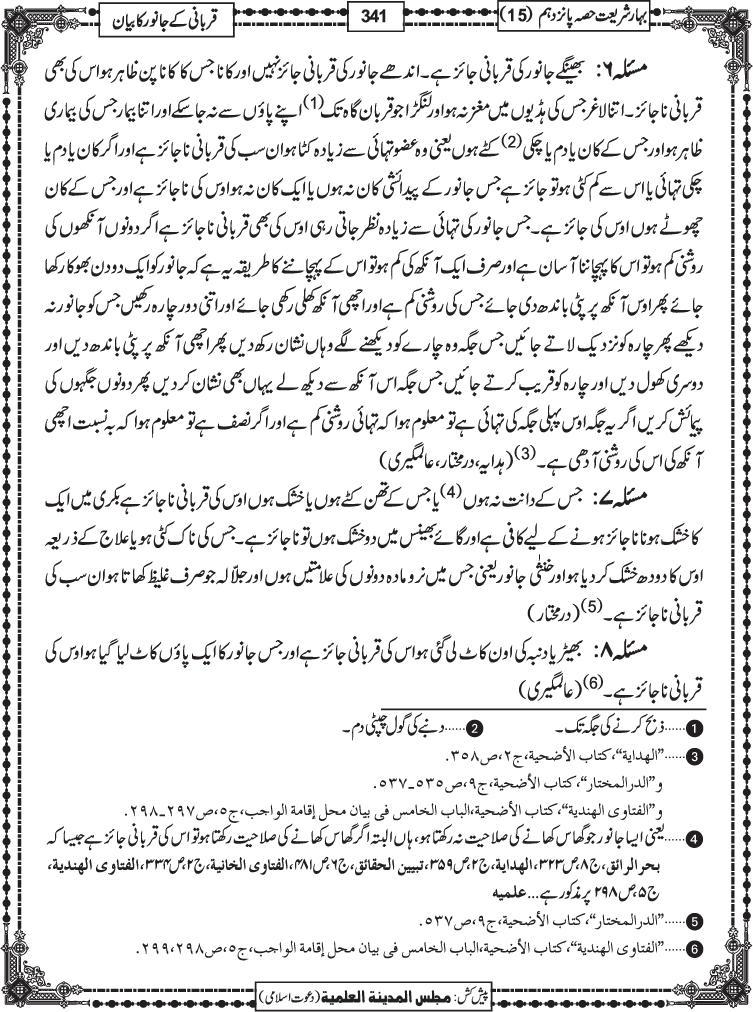 بہارِ شریعت حصہ پانزدہم (15)
341
قربانی کے جانور کا بیان
مسئلہ ۶: بھینگے جانور کی قربانی جائز ہے۔ اندھے جانور کی قربانی جائز نہیں اور کانا جس کا کانا پن ظاہر ہو اس کی بھی
قربانی ناجائز۔ اتنا لاغر جس کی ہڈیوں میں مغز نہ ہو اور لنگڑا جو قربان گاہ تک (1) اپنے پاؤں سے نہ جاسکے اور اتنا بیمار جس کی بیماری
ظاہر ہو اور جس کے کان یا دم یا چکی (2) کٹے ہوں یعنی وہ عضو تہائی سے زیادہ کٹا ہو ان سب کی قربانی ناجائز ہے اور اگر کان یا دم یا
چکی تہائی یا اس سے کم کٹی ہو تو جائز ہے جس جانور کے پیدائشی کان نہ ہوں یا ایک کان نہ ہو اوس کی ناجائز ہے اور جس کے کان
چھوٹے ہوں اوس کی جائز ہے۔ جس جانور کی تہائی سے زیادہ نظر جاتی رہی اوس کی بھی قربانی ناجائز ہے اگر دونوں آنکھوں کی
روشنی کم ہو تو اس کا پہچاننا آسان ہے اور صرف ایک آنکھ کی کم ہو تو اس کے پہچاننے کا طریقہ یہ ہے کہ جانور کو ایک دو دن بھوکا رکھا
جائے پھر اوس آنکھ پر پٹی باندھ دی جائے جس کی روشنی کم ہے اور اچھی آنکھ کھلی رکھی جائے اور اتنی دور چارہ رکھیں جس کو جانور نہ
دیکھے پھر چارہ کو نزدیک لاتے جائیں جس جگہ وہ چارے کو دیکھنے لگے وہاں نشان رکھ دیں پھر اچھی آنکھ پر پٹی باندھ دیں اور
دوسری کھول دیں اور چارہ کو قریب کرتے جائیں جس جگہ اس آنکھ سے دیکھ لے یہاں بھی نشان کر دیں پھر دونوں جگہوں کی
پیمائش کریں اگر یہ جگہ اوس پہلی جگہ کی تہائی ہے تو معلوم ہوا کہ تہائی روشنی کم ہے اور اگر نصف ہے تو معلوم ہوا کہ بہ نسبت اچھی
آنکھ کی اس کی روشنی آدھی ہے۔ (3) (ہدایہ، درمختار، عالمگیری)
مسئلہ ۷: جس کے دانت نہ ہوں (4) یا جس کے تھن کٹے ہوں یا خشک ہوں اوس کی قربانی ناجائز ہے بکری میں ایک
کا خشک ہونا ناجائز ہونے کے لیے کافی ہے اور گائے بھینس میں دو خشک ہوں تو ناجائز ہے۔ جس کی ناک کٹی ہو یا علاج کے ذریعہ
اوس کا دودھ خشک کر دیا ہو اور خنثٰی جانور یعنی جس میں نر و مادہ دونوں کی علامتیں ہوں اور جلّالہ جو صرف غلیظ کھاتا ہو ان سب کی
قربانی ناجائز ہے۔ (5) (درمختار)
مسئلہ ۸: بھیڑ یا دنبہ کی اون کاٹ لی گئی ہو اس کی قربانی جائز ہے اور جس جانور کا ایک پاؤں کاٹ لیا گیا ہو اوس کی
قربانی ناجائز ہے۔ (6) (عالمگیری)
1 ......ذبح کرنے کی جگہ تک۔ 2 ......دنبے کی گول چپٹی دم۔
3 ......"الھدایة"، کتاب الأضحیة، ج۲، ص۳۵۸.
و"الدرالمختار"، کتاب الأضحیة، ج۹، ص۵۳۵۔۵۳۷.
و"الفتاوی الھندیة"، کتاب الأضحیة، الباب الخامس فی بیان محل إقامة الواجب، ج۵، ص۲۹۷۔۲۹۸.
4 ......یعنی ایسا جانور جو گھاس کھانے کی صلاحیت نہ رکھتا ہو، ہاں البتہ اگر گھاس کھانے کی صلاحیت رکھتا ہو تو اس کی قربانی جائز ہے جیسا کہ
بحر الرائق، ج۸، ص۳۲۳، الھدایة، ج۲، ص۳۵۹، تبیین الحقائق، ج۶، ص۴۸۱، الفتاوی الخانیة، ج۲، ص۳۳۴، الفتاوی الھندیة،
ج۵، ص۲۹۸ پر مذکور ہے... علمیه
5 ......"الدرالمختار"، کتاب الأضحیة، ج۹، ص۵۳۷.
6 ......"الفتاوی الھندیة"، کتاب الأضحیة، الباب الخامس فی بیان محل إقامة الواجب، ج۵، ص۲۹۸، ۲۹۹.
پیش کش: مجلس المدینة العلمیة (دعوتِ اسلامی)